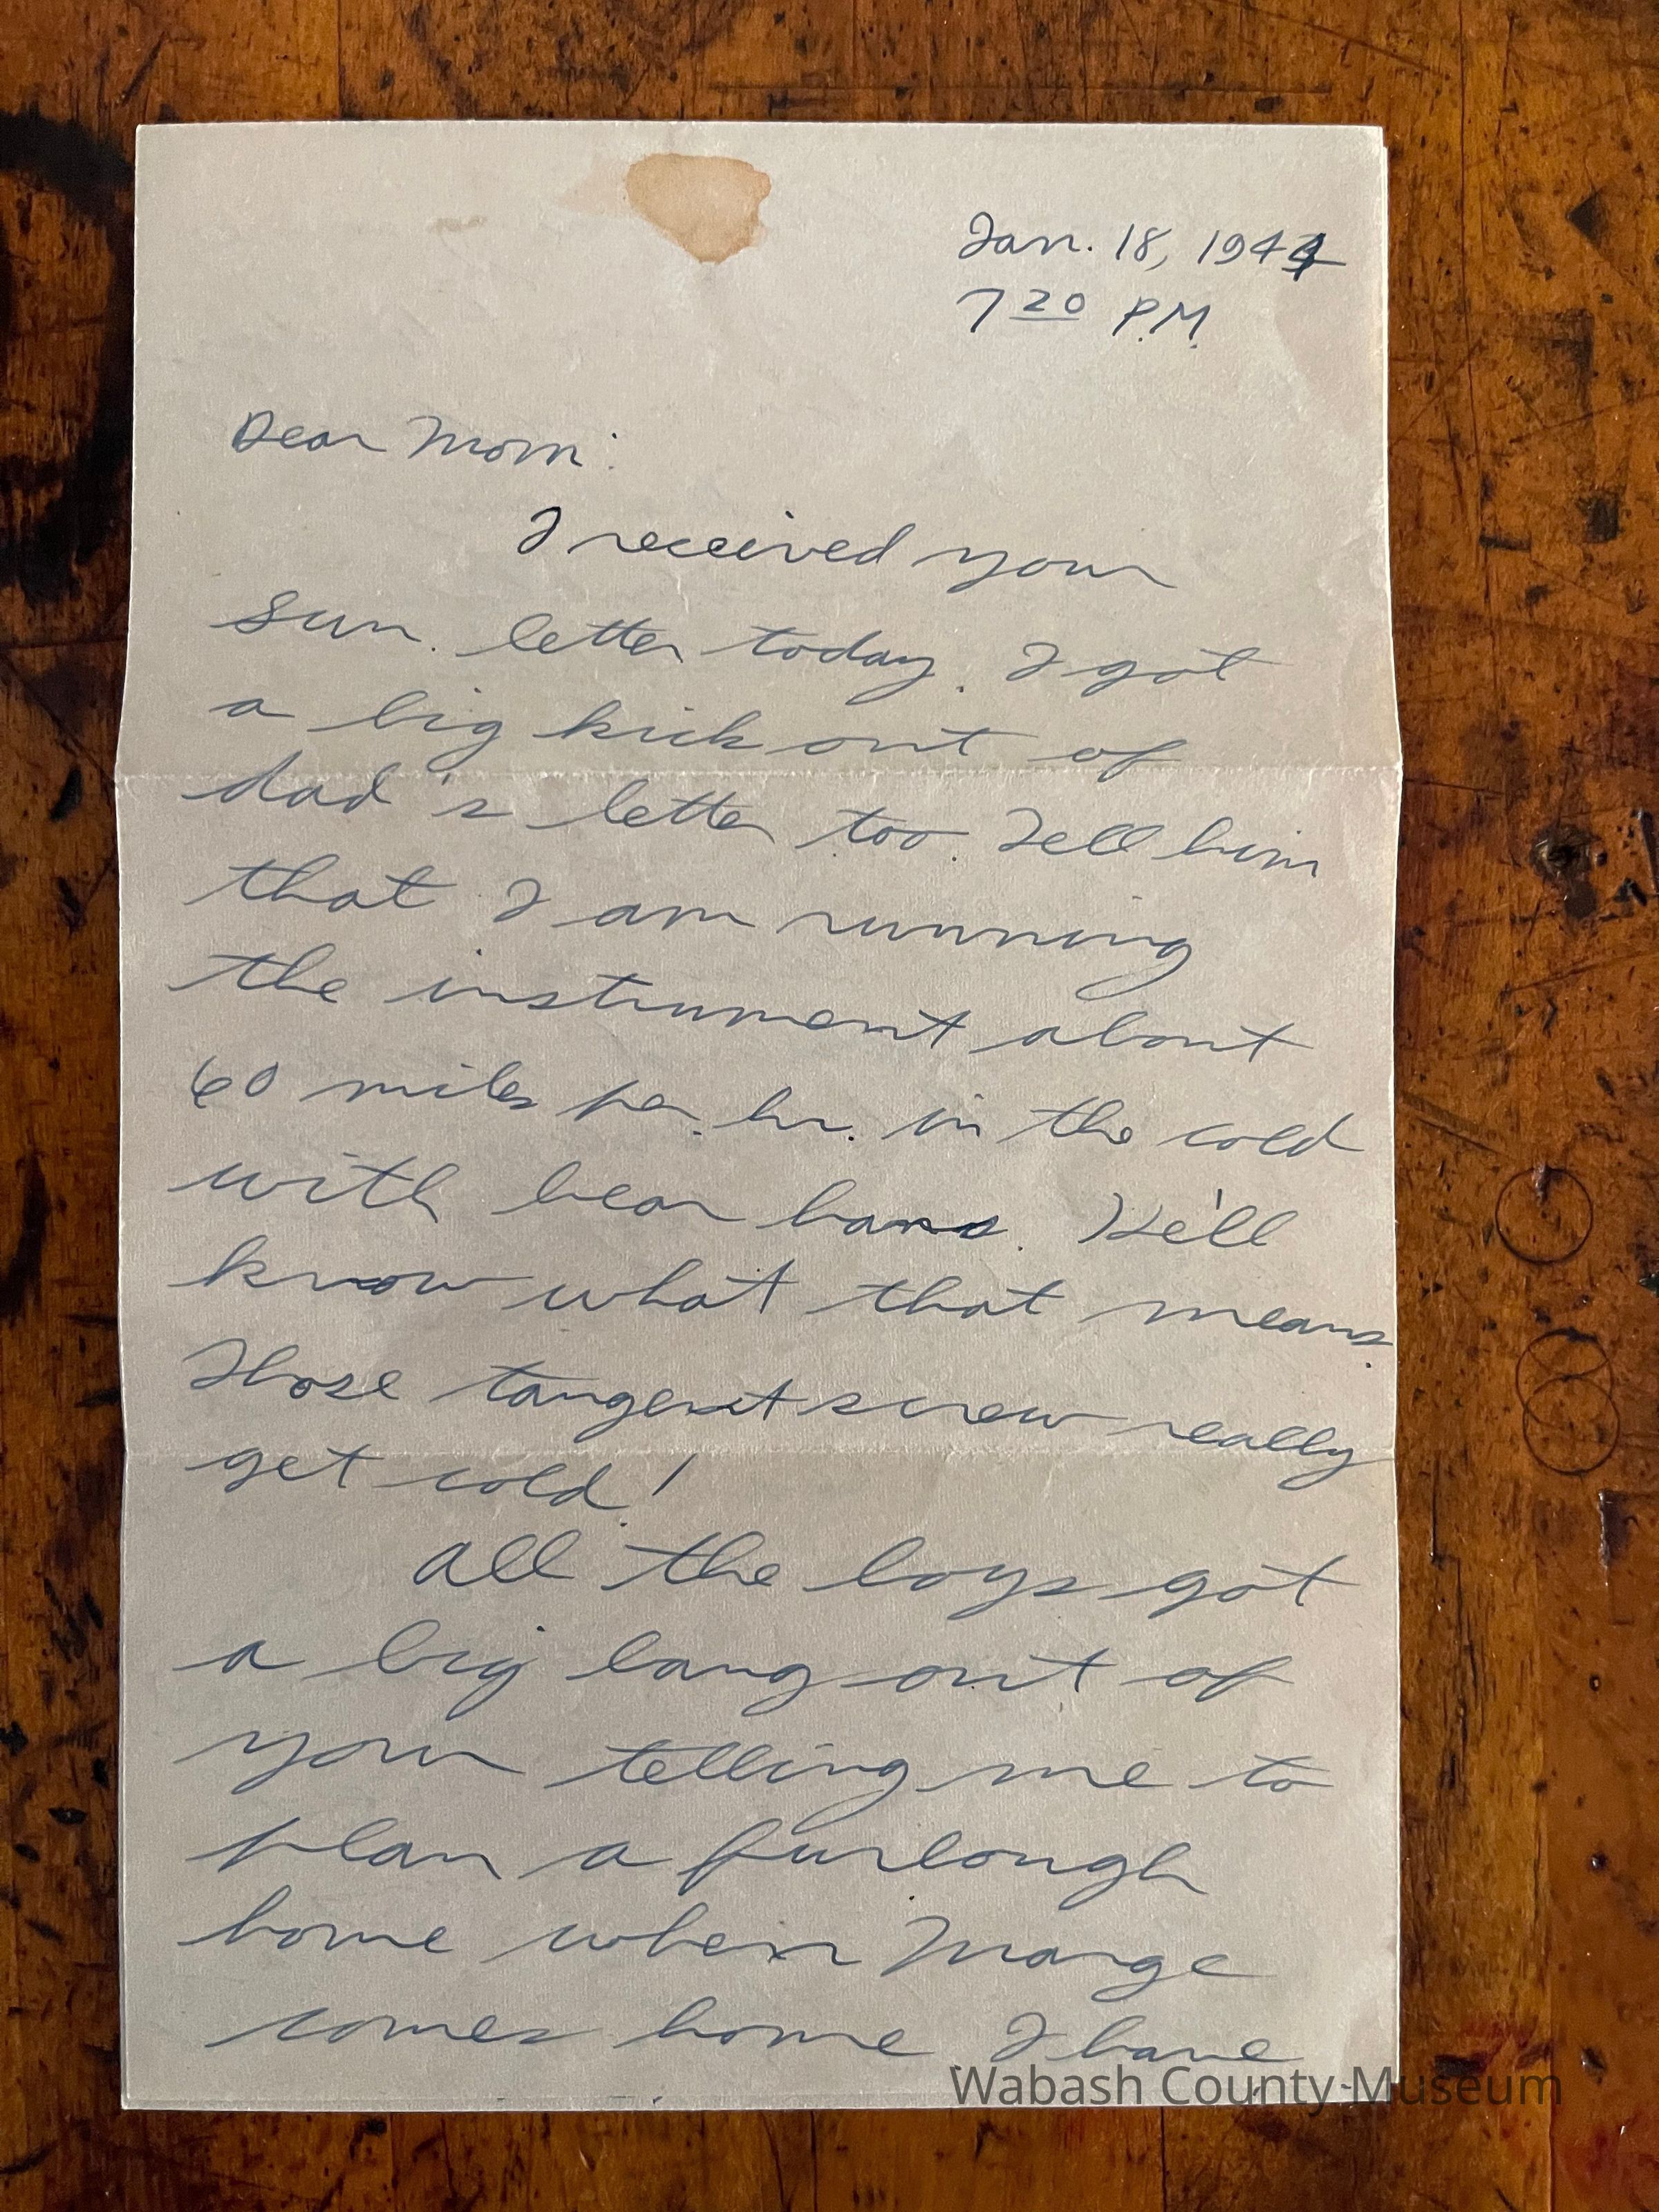 Jan. 18, 1944
7 20 P.M.
Dear Mom:
I received your
Sun. letter today. I got
a big kick out of
dad's letter too. Tell him
that I am running
the instrument about
60 miles per. hr. in the cold
with bear hans. He'll
know what that means.
Those tangent screw really
get cold!
All the boys got
a big laug out of
your telling me to
plan a furlough
home when Marge
comes home I have
Wabash County Museum